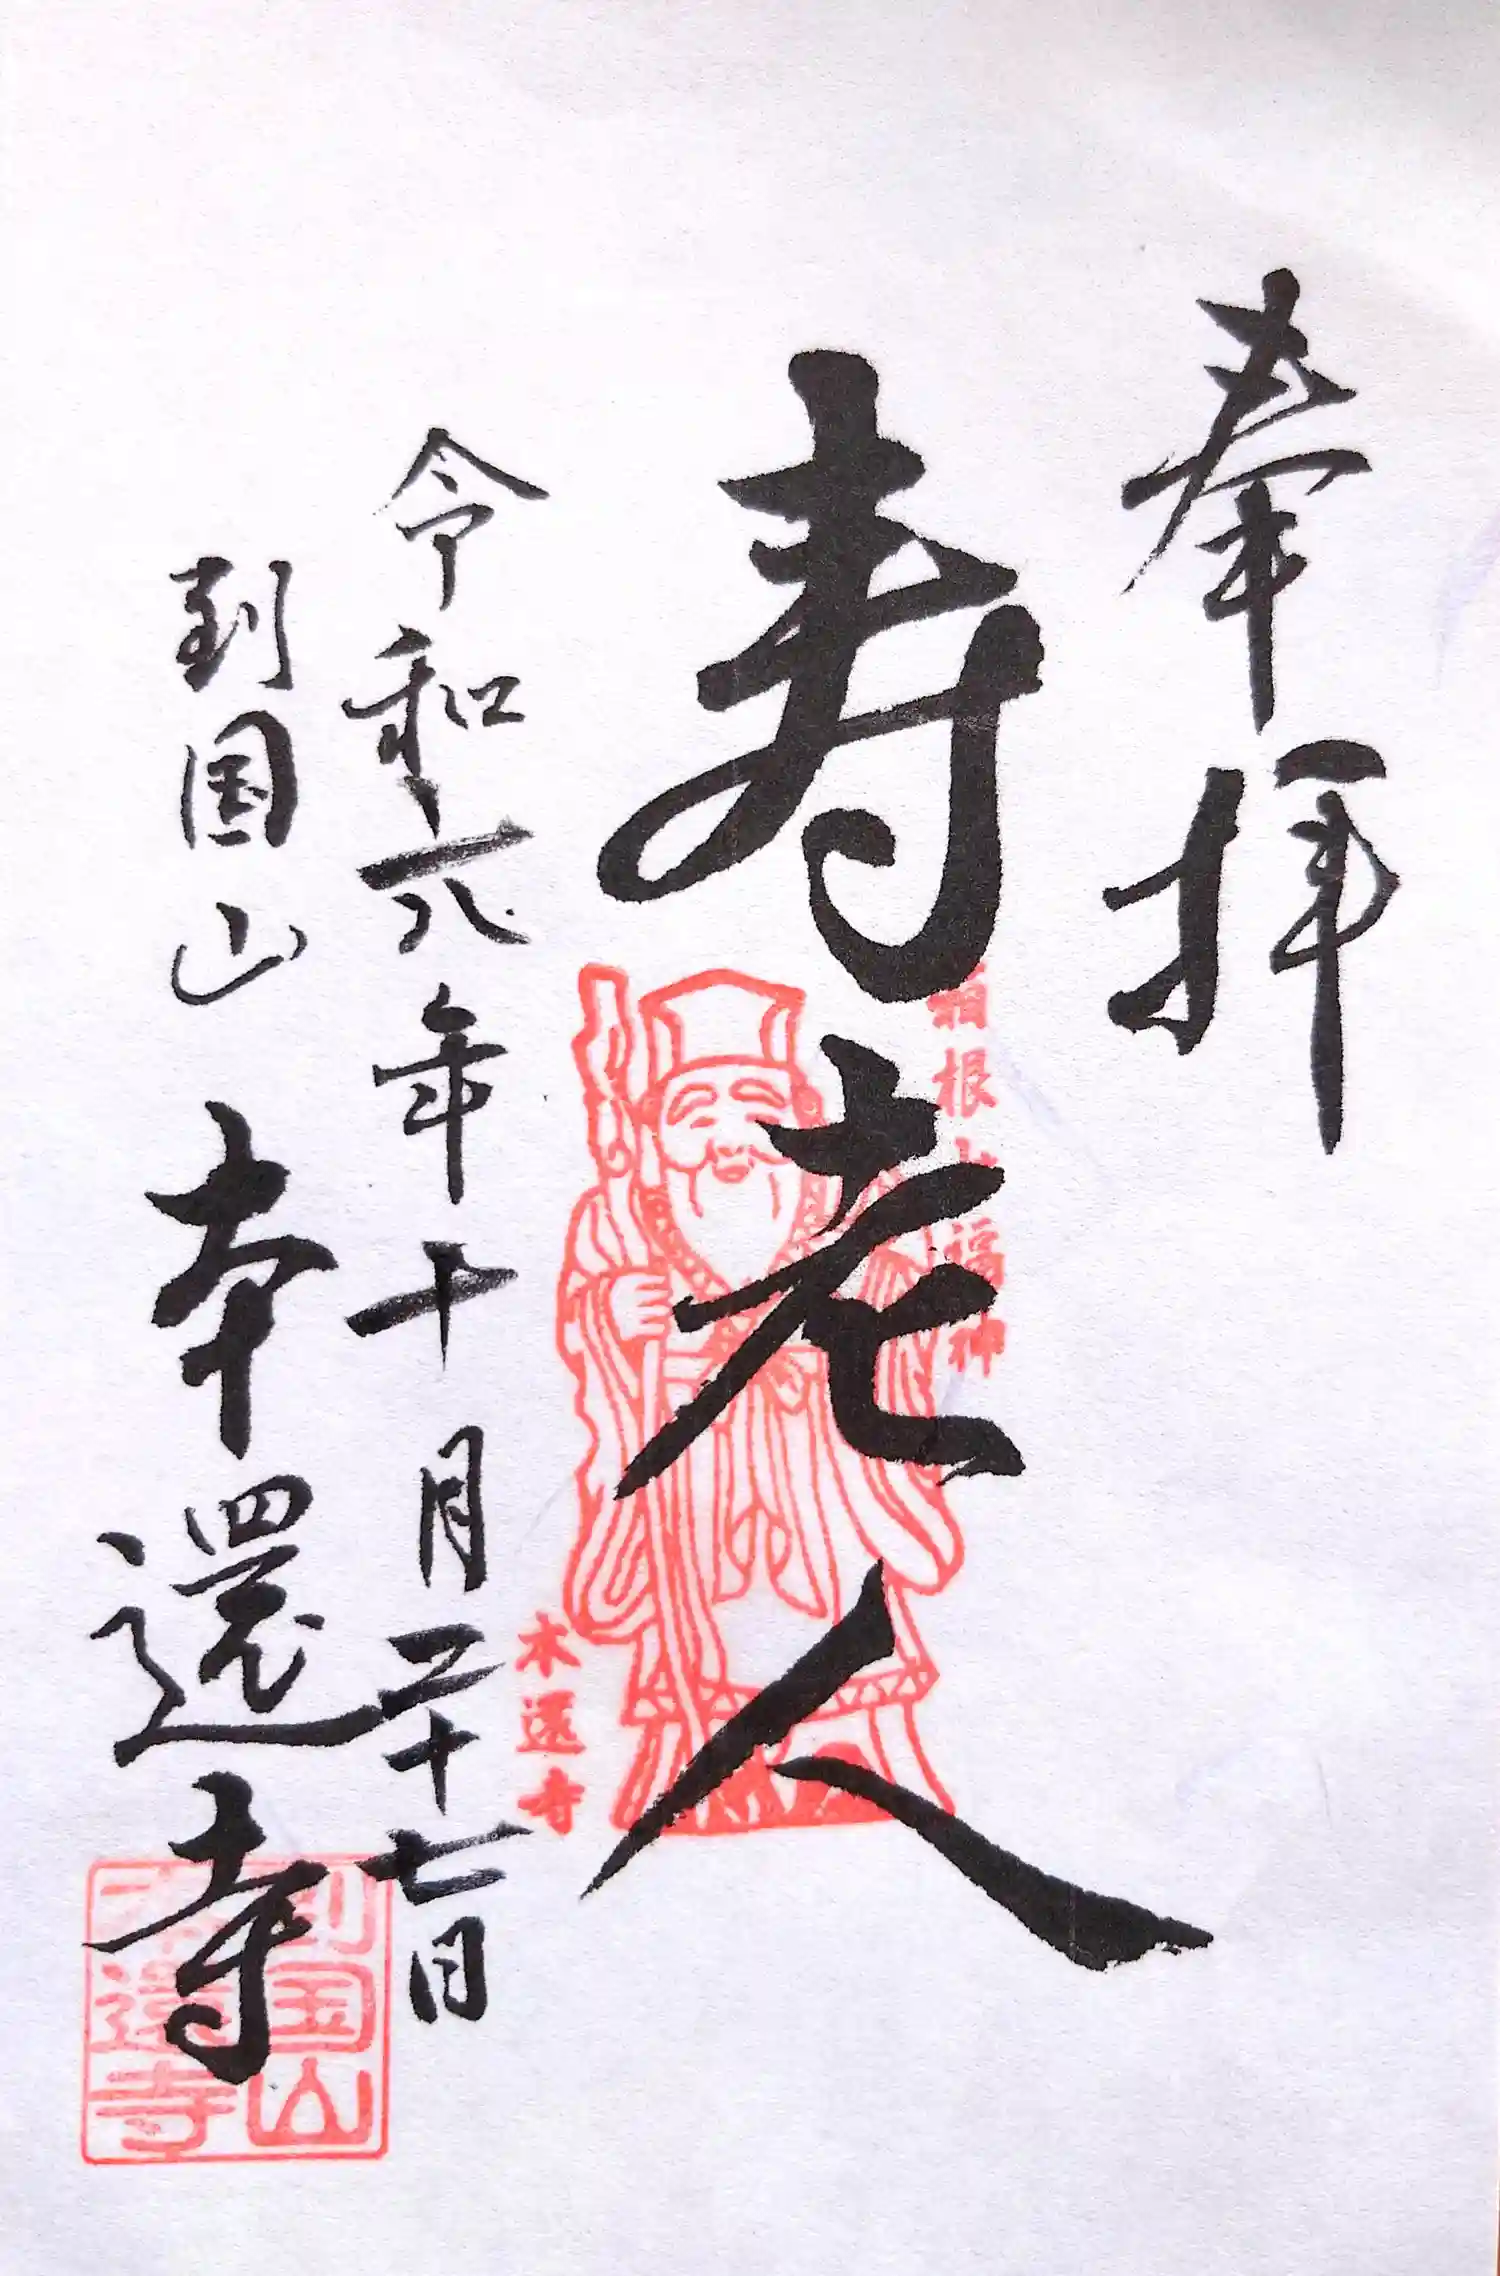 奉拝
寿老人
箱根山七福神
本還寺
令和六年十月二十七日
到国山
本還寺
到国山
本還寺